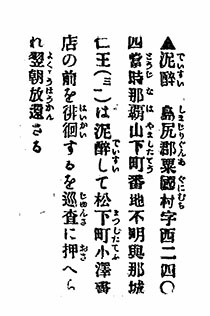 ▲泥醉　島尻郡粟國村字西二四〇
四當時那覇山下町番地不明與那城
仁王(三一)は泥醉して松下町小澤書
店の前を徘徊するを巡査に押へら
れ翌朝放還さる